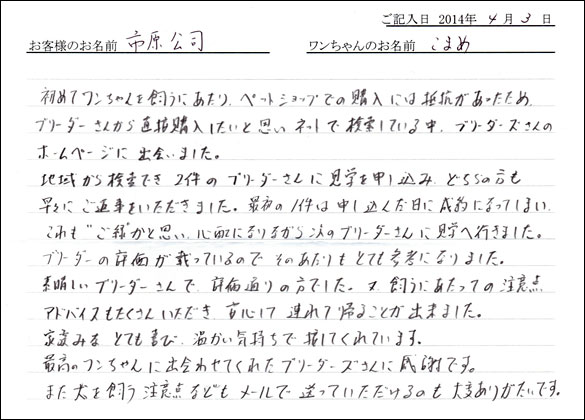 ご記入日 2014年 4月 3日
お客様のお名前 市原公司 ワンちゃんのお名前 こまめ
初めてワンちゃんを飼うにあたり、ペットショップでの購入には抵抗があったため、
ブリーダーさんから直接購入したいと思い ネットで検索している中、ブリーダーズさんの
ホームページに出会いました。
地域から検索でき 2件のブリーダーさんに見学を申し込み、どちらの方も
早々にご返事をいただきました。最初の1件は申し込んだ日に成約になってしまい、
これも"ご縁"かと思い、心配になりながら次のブリーダーさんに見学へ行きました。
ブリーダーの評価が載っているので そのあたりも とても参考になりました。
素晴しいブリーダーさんで、評価通りの方でした。又、飼うにあたっての注意点
アドバイスもたくさんいただき、安心して 連れて帰ることが出来ました。
家族みな とても喜び、温かい気持ちで 接してくれています。
最高のワンちゃんに出会わせてくれたブリーダーズさんに感謝です。
また犬を飼う注意点なども メールで送っていただけるのも 大変ありがたいです。